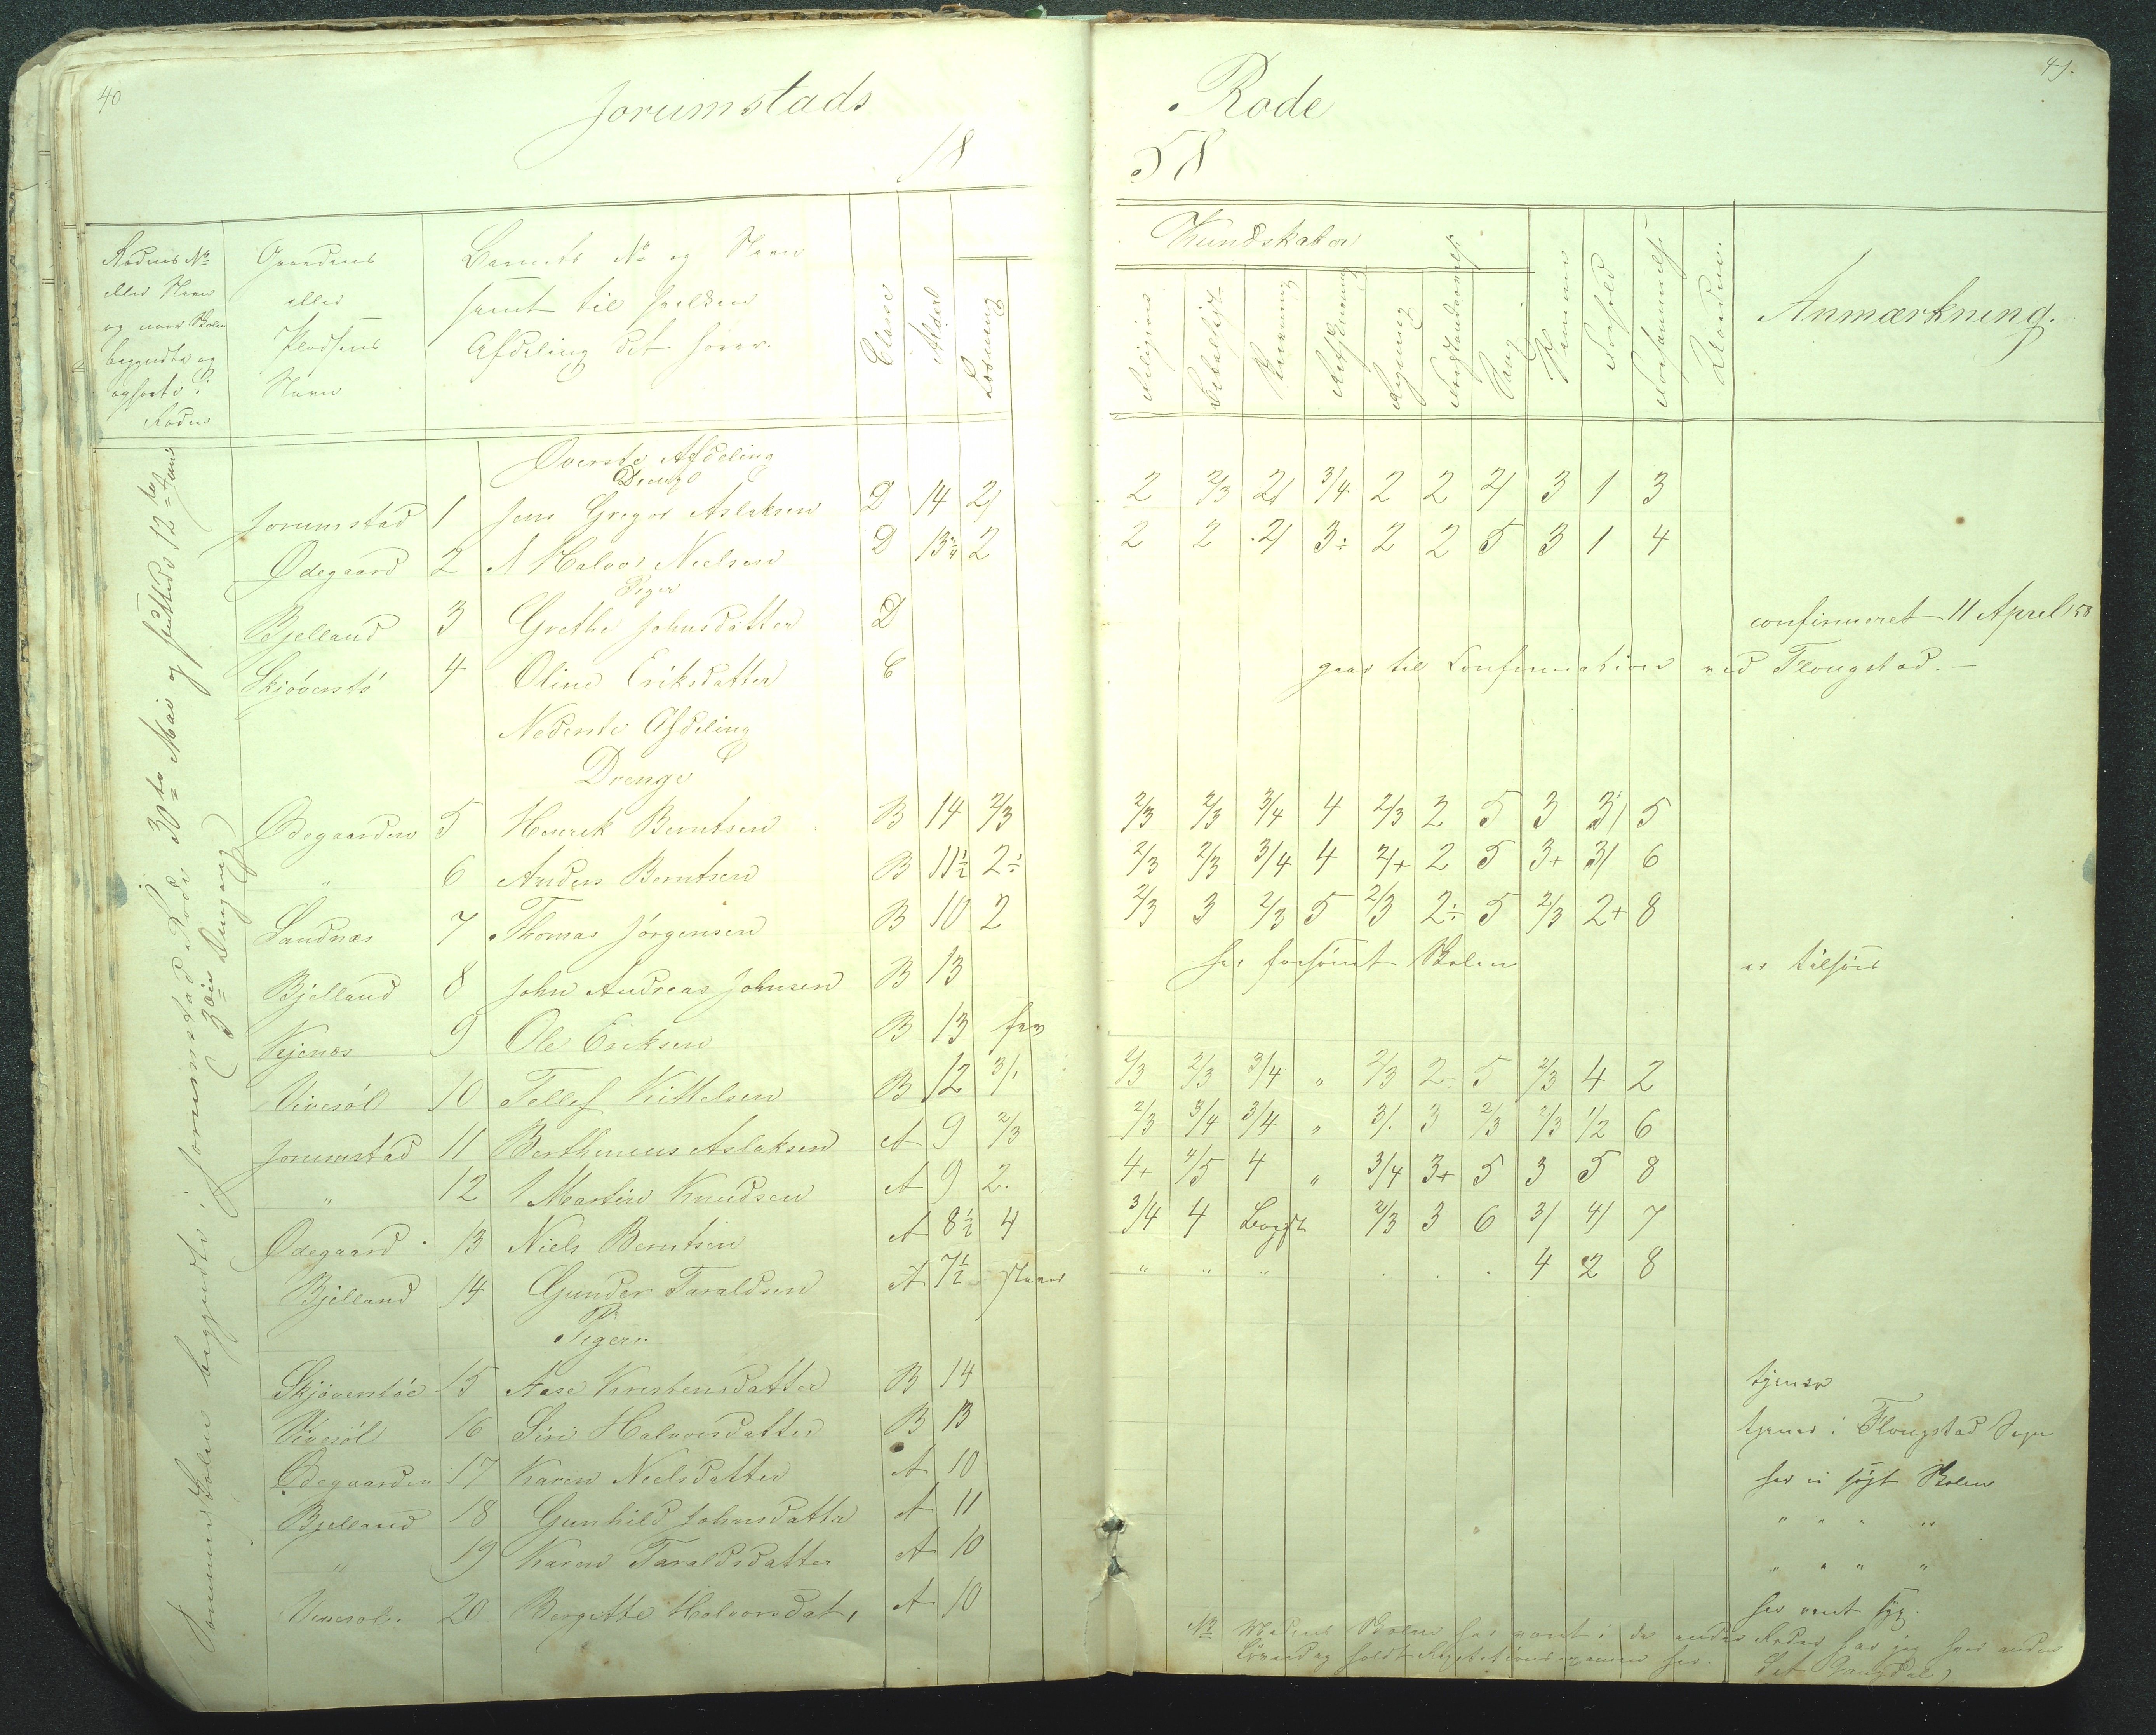 40
41.
Jorumstads Rode
18 58
Rodens No
eller Navn
og naar Skolen
begyndte og
ophørte i
Roden
Gaardens
eller
Pladsens
Navn
Barnets No og Navn
samt til hvilken
Afdeling det hører.
Classe
Alder
Læsning
Kundskaber
Religion
Bibelhist
Skrivning
Retskrivning
Regning
Forstandsøvelse
Sang
Nemme
Forhold
Forsømmelse
Anmærkning.
Sommer Skolen begyndte i Jorumstad Rode 30te Mai og sluttedes 12te
(3die Omgang)
Øverste Afdeling
Drenge
Jorumstad 1 Jens Gregor Aslaksen D 14 2/ 2 2/3 2/ 3/4 2 2 2/ 3 1 3
Ødegaard 2 Halvor Nielsen D 13 3/4 2 2 2 2/ 3÷ 2 2 5 3 1 4
Piger
Bjelland 3 Grethe Johnsdatter D confirmeret 11 April 58
Skjøverstø 4 Oline Eriksdatter C gaar til Confirmation ved Flougstad.
Nederste Afdeling
Drenge
Ødegaarden 5 Henrik Berntsen B 14 2/3 2/3 2/3 3/4 4 2/3 2 5 3 3/ 5
" 6 Anders Berntsen B 11½ 2÷ 2/3 2/3 3/4 4 2/+ 2 5 3+ 3/ 6
Sandnæs 7 Thomas Jørgensen B 10 2 2/3 3 2/3 5 2/3 2÷ 5 2/3 2+ 8
Bjelland 8 John Andreas Johnsen B 13 forsømt Skolen er tilsøes
Kjenæs 9 Ole Eriksen B 13
Vivesøl 10 Tellef Kittelsen B 12 3/. 2/3 2/3 3/4 " 2/3 2÷ 5 2/3 4 2
Jorumstad 11 Berthinius Aslaksen A 9 2/3 2/3 3/4 3/4 " 3/. 3 2/3 2/3 1/2 6
" 12 Martin Knudsen A 9 2. 4+ 4/5 4 " 3/4 3+ 5 3 5 8
Ødegaard 13 Niels Berntsen A 8½ 4 3/4 4 Begyt 2/3 3 6 3/ 4/ 7
Bjelland 14 Gunder Taraldsen A 7½ staver " " " . . . 4 2 8
Piger.
Skjøverstøe 15 Aase Kirstensdatter B 14 tjener
Vivesøl 16 Siri Halvorsdatter B 13 tjener i Flougstad Sogn
Ødegaarden 17 Karen Nielsdatter A 10 har ei søgt Skolen
Bjelland 18 Gunhild Johnsdatter A 11 " " " "
" 19 Karen Taraldsdatter A 10 " " " "
Vivesøl. 20 Bergitte Halvorsdat, A 10 har vært syg.
NB Medens Skolen har været i de andre Roder har jeg hver anden
Løverdag holdt Repetitionsexamen her.